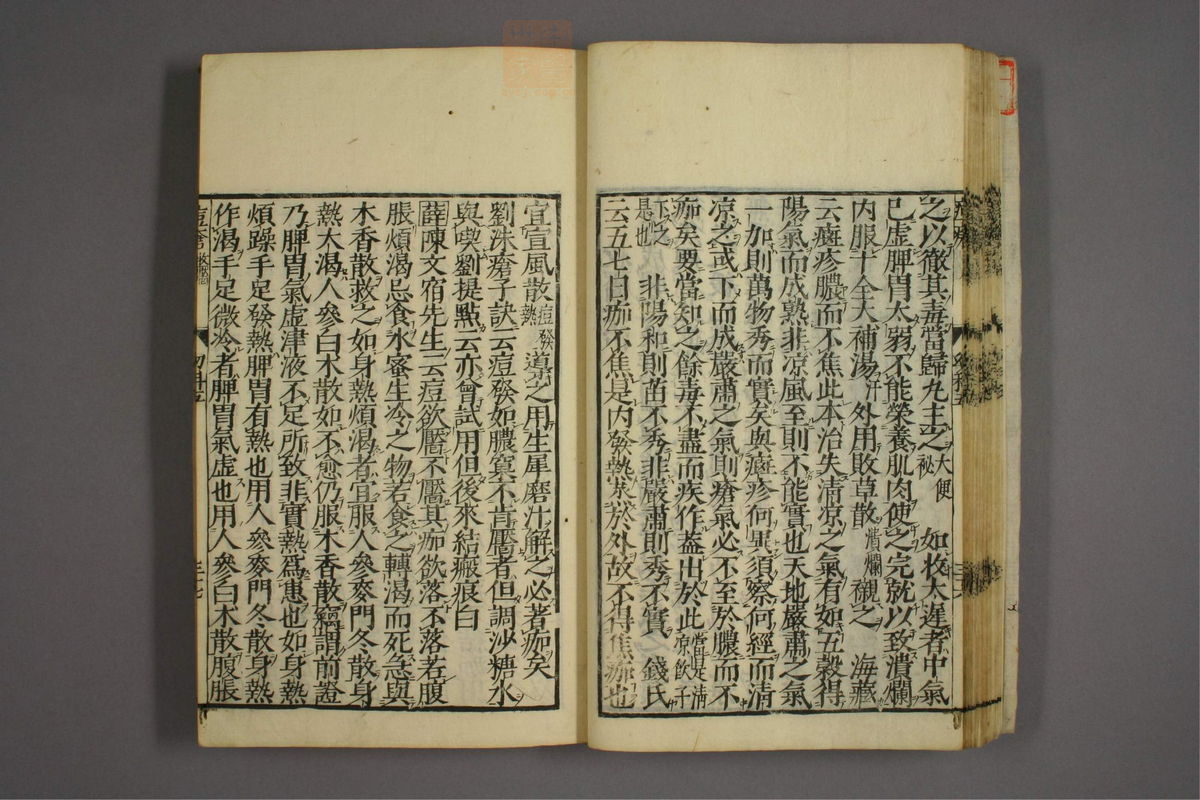 之以徹其毒當歸丸主之大便秘 如收太遲者中氣
已虛脾胃太弱不能榮養肌肉使之完就以致潰爛
内服十全大補湯 外用敗草散潰爛襯之 海藏
云癍疹膿而不焦此本治失清凉之氣有如五穀得
陽氣而成熟非凉風至則不能實也天地嚴肅之氣
一加則萬物秀而實矣與癍疹何異須察何經而清
凉之或下而成嚴肅之氣則瘡氣必不至於膿而不
痂矣要當知之餘毒不盡而疾作蓋出於此當是清凉飲子
下之是也 非陽和則苗不秀非嚴肅則秀不實 錢氏
云五七日痂不焦是内發熱蒸於外故不得焦痂也
宜宣風散痘發熱導之用生犀磨汁解之必著痂矣
劉洙瘡子訣云痘發如膿窠不肯靨者但調沙糖水
與喫劉提點云亦曾試用但後來結瘢痕白
薛陳文宿先生云痘欲靨不靨其痂欲落不落若腹
脹煩渴忌食水蜜生冷之物若食之轉渴而死急與
木香散救之如身熱煩渴者宜服人參麥門冬散身
熱大渴人參白朮散如不愈仍服木香散竊謂前證
乃脾胃氣虛津液不足所致非實熱爲患也如身熱
煩躁手足發熱脾胃有熱也用人參麥門冬散身熱
作渴手足微冷者脾胃氣虛也用人參白朮散腹脹